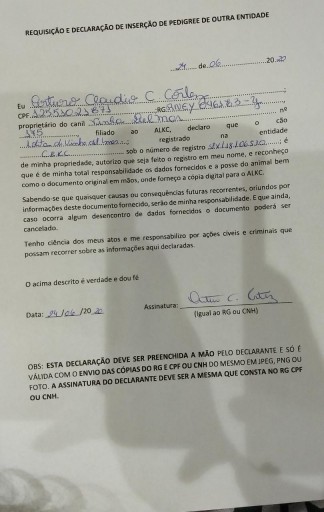 REQUISIÇÃO E DECLARAÇÃO DE INSERÇÃO DE PEDIGREE DE OUTRA ENTIDADE
29 de 06 2020
Eu Arturo Claudio C.
CPF RG:
proprietário do canil nº
175 filiado ao ALKC, declaro que o cão
registrado na entidade
CBKC sob o número de registro é
de minha propriedade, autorizo que seja feito o registro em meu nome, e reconheço
que é de minha total responsabilidade os dados fornecidos e a posse do animal bem
como o documento original em mãos, onde forneço a cópia digital para o ALKC.
Sabendo-se que quaisquer causas ou consequências futuras recorrentes, oriundos por
informações deste documento fornecido, serão de minha responsabilidade. E que ainda,
caso ocorra algum desencontro de dados fornecidos o documento poderá ser
cancelado.
Tenho ciência dos meus atos e me responsabilizo por ações cíveis e criminais que
possam recorrer sobre as informações aqui declaradas.
O acima descrito é verdade e dou fé
Data: /06/20 20
Assinatura:
(Igual ao RG ou CNH)
OBS: ESTA DECLARAÇÃO DEVE SER PREENCHIDA A MÃO PELO DECLARANTE E SÓ É
VÁLIDA COM O ENVIO DAS CÓPIAS DO RG E CPF OU CNH DO MESMO EM JPEG, PNG OU
FOTO. A ASSINATURA DO DECLARANTE DEVE SER A MESMA QUE CONSTA NO RG CPF
OU CNH.